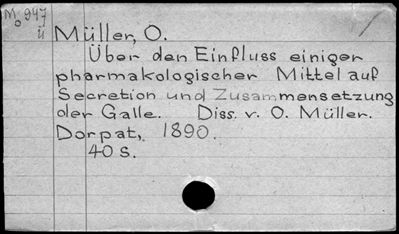 Mo 947
ü
Müller, O.
Über den Einfluss einiger
pharmakologischer Mittel auf
Secretion und Zusammensetzung
der Galle. Diss. v. O. Müller.
Dorpat, 1890.
40 S.